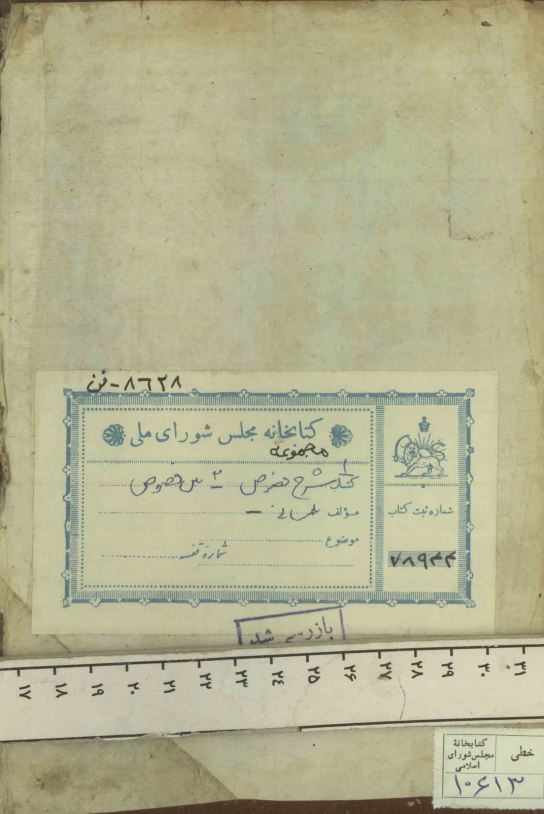 ۸۶۲۸ -
کتابخانه مجلس شورای ملی
مجموعه
کتاب شرح فصوص ۲
مؤلف
موضوع
شماره قفسه
شماره ثبت کتاب
۷۸۹۴۴
بازرسی شد
۱۷ ۱۸ ۱۹ ۲۰ ۲۱ ۲۲ ۲۳ ۲٤ ۲۵ ۲۶ ۲۷ ۲۸ ۲۹ ۳۰ ۳۱
خطی
کتابخانهٔ
مجلس شورای
اسلامی
۱۰۶۱۳